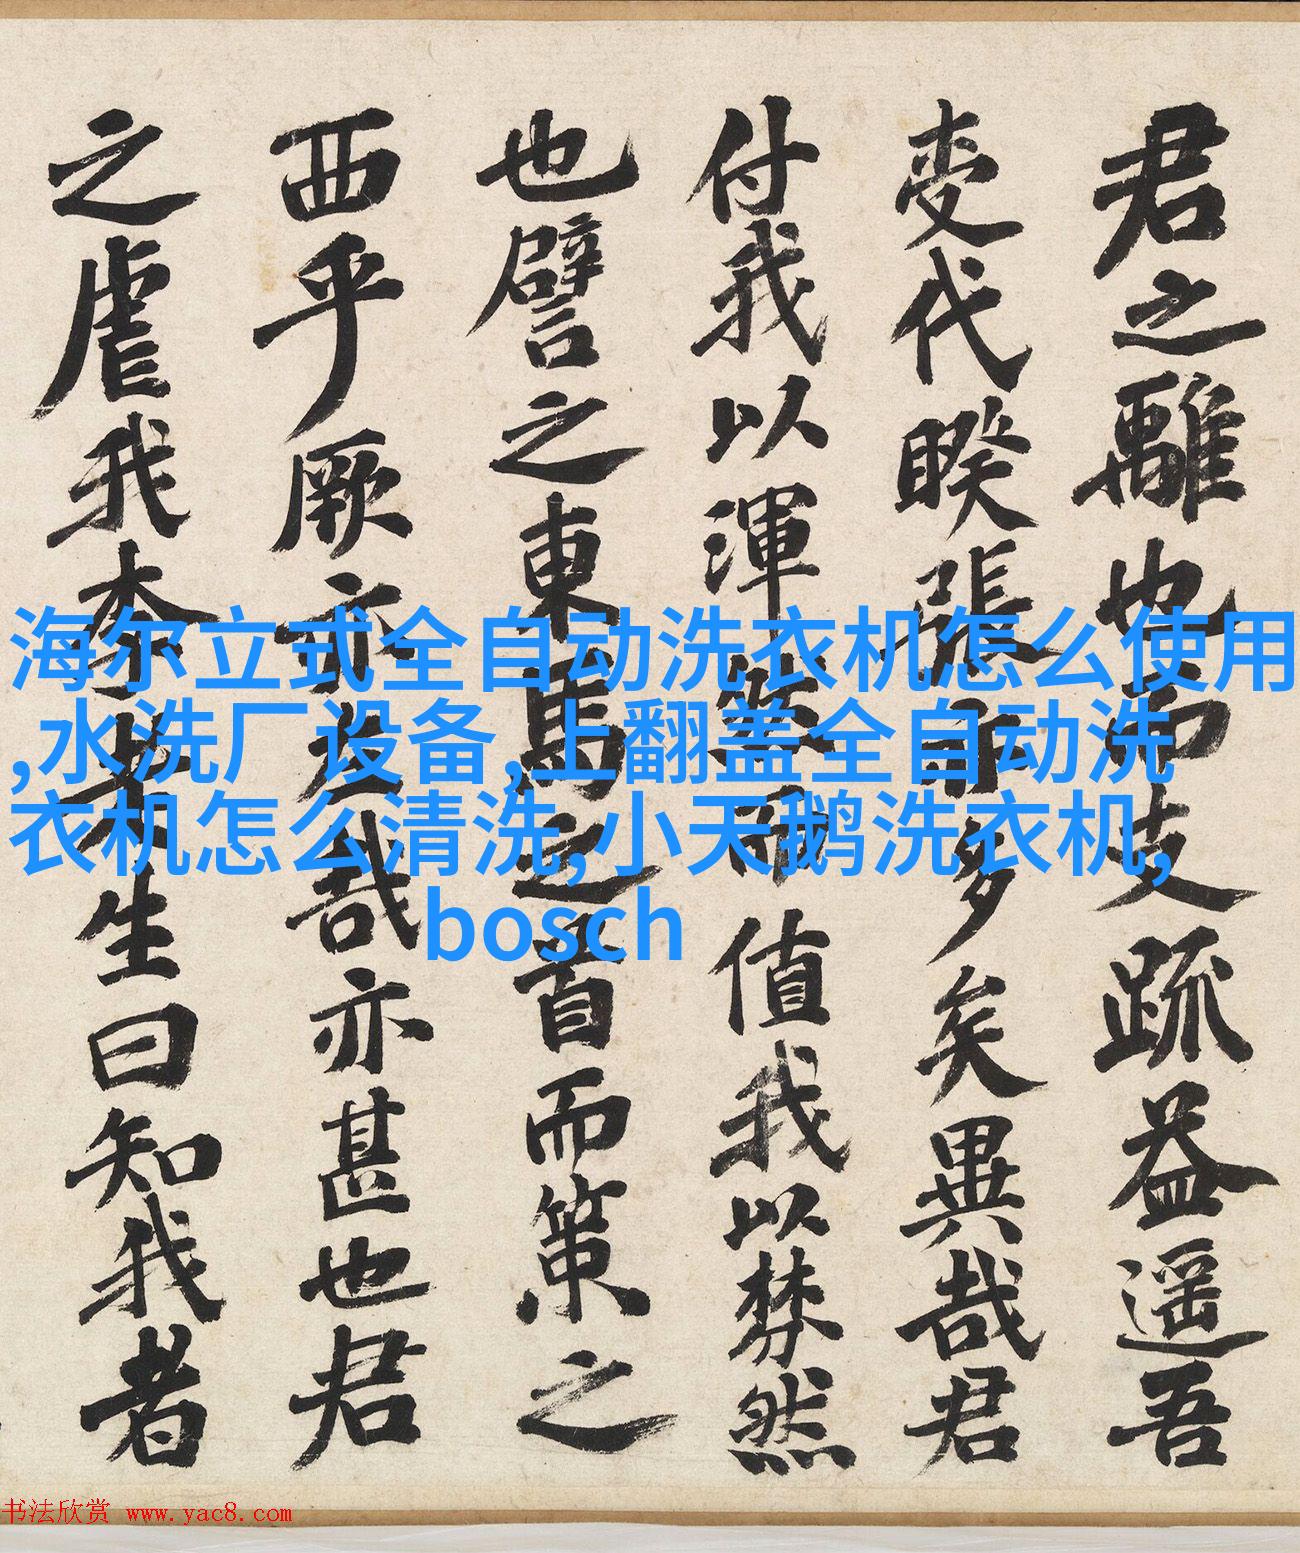 君之離也而支疏益遥吾
代睽張多矣異哉君
付我以渾值我以棼然
也譬之東馬之首而策之
西乎厥亦左哉亦甚也君
之虐我生曰知我者
海尔立式全自动洗衣机怎么使用
,水洗厂设备,上翻盖全自动洗
衣机怎么清洗,小天鹅洗衣机,
bosch
书法欣赏 www.yac8.com